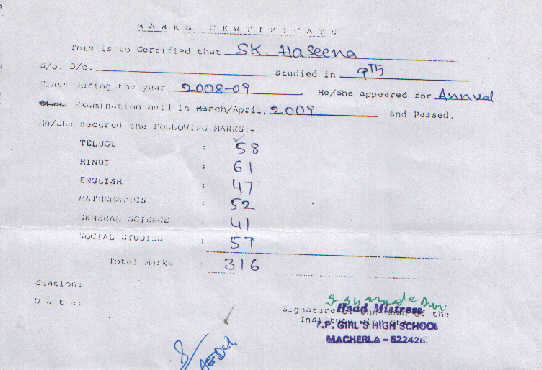 MARKS CERTIFICATE
This is to Certified that SK. Haseena
S/o. D/o. Studied in 9th
Class during the year 2008-09 He/She appeared for Annual
Examination held in March/April 2009 and Passed.
He/She secured the FOLLOWING MARKS.
TELUGU : 58
HINDI : 61
ENGLISH : 47
MATHEMATICS : 52
GENERAL SCIENCE : 41
SOCIAL STUDIES : 57
Total Marks 316
Station:
Date:
Signature of the
Head Mistress
Z.P. GIRL'S HIGH SCHOOL
MACHERLA - 522426